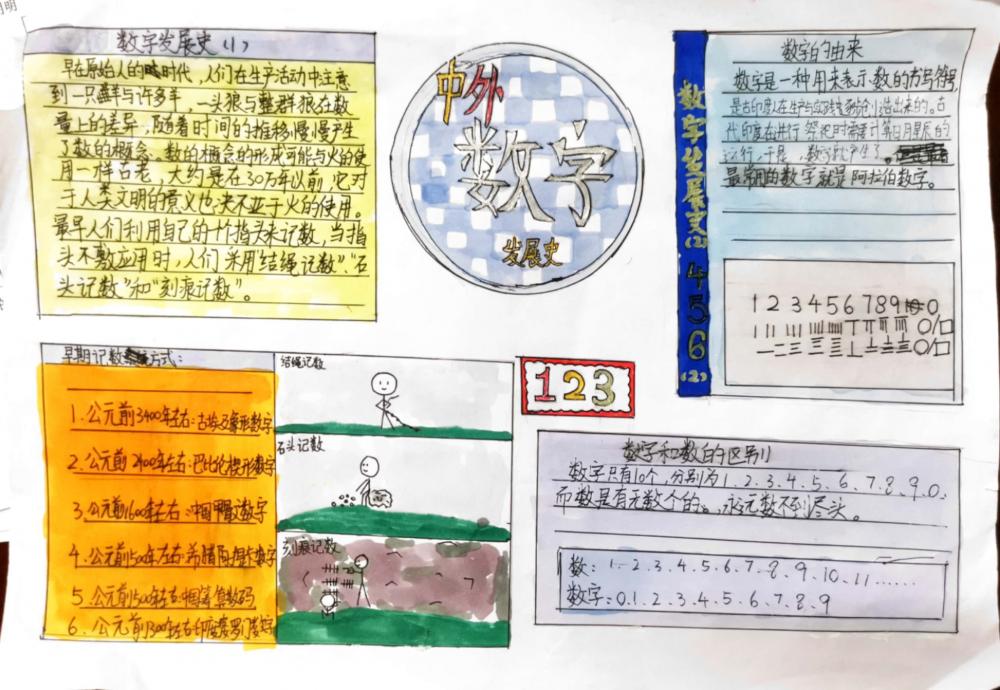 明
数字发展史(1)
早在原始人的时代,人们在生产活动中主意
到一只羊与许多羊,一头狼与整群狼在数
量上的差异,随着时间的推移慢慢产生
了数的概念。数的概念的形成可能与火的使
用一样古老,大约是在30万年以前,它对
于人类文明的意义也决不亚于火的使用。
最早人们利用自己的十个指头来记数,当指
头不敷应用时,人们采用“结绳记数”、“石
头记数”和“刻痕记数”。
中外
数字
发展史
数字发展史(2)456(2)
数字的由来
数字是一种用来表示数的书写符号,
是古印度人在生产与实践中逐渐创造出来的。古
代印度在进行
运行,于是,数字就产生了。
最常用的数字就是阿拉伯数字。
1 2 3 4 5 6 7 8 9 0
早期记数方式:
1.公元前3400年左右:古埃及象形数字
2.公元前2400年左右:巴比伦楔形数字
3.公元前1600年左右:中国甲骨文数字
4.公元前500年左右:希腊阿提卡数字
5.公元前500年左右:中国筹算数码
6.公元前300年左右:印度婆罗门数字
结绳记数
石头记数
刻痕记数
123
数字和数的区别
数字只有10个,分别为1、2、3、4、5、6、7、8、9、0.
而数是有无数个的。永远数不到尽头。
数:1、2、3、4、5、6、7、8、9、10、11……
数字:0、1、2、3、4、5、6、7、8、9